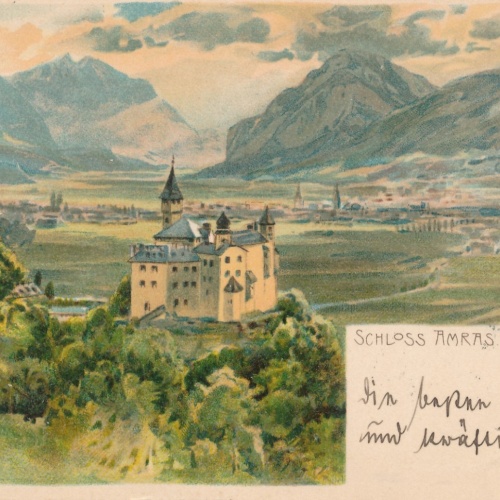 SCHLOSS AMRAS
die besten
und kräfti